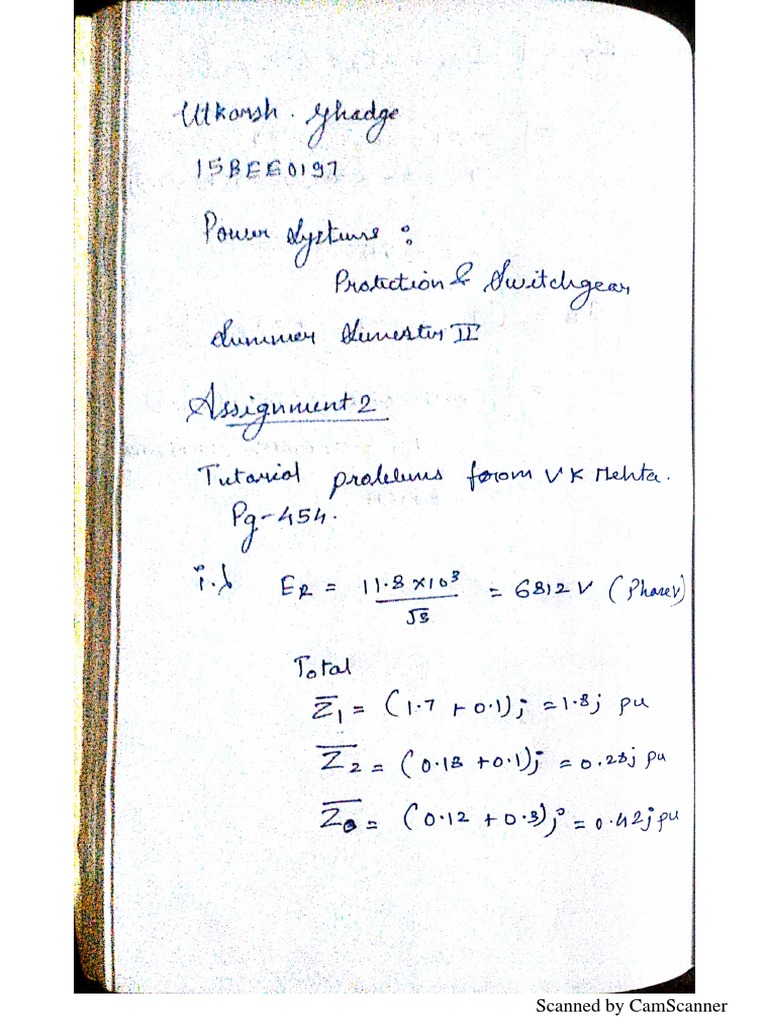 Utkarsh. Ghadge
15BEE0197
Power Systems :
Protection & Switchgear
Summer Semester II
Assignment 2
Tutorial problems from V K Mehta.
Pg-454.
i.) E_R = 11.8 ×10³ / √3 = 6812 V (Phase V)
Total
Z̅₁ = (1.7 + 0.1)j = 1.8j pu
Z̅₂ = (0.18 + 0.1)j = 0.28j pu
Z̅₀ = (0.12 + 0.3)j = 0.42j pu
Scanned by CamScanner